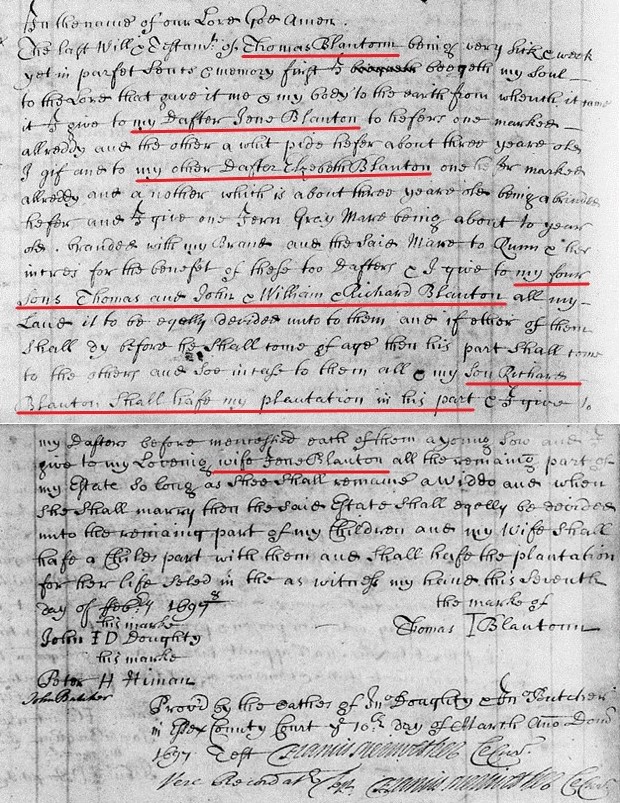 In the name of our Lord God Amen.
The last Will & Testamt. of Thomas Blantonn being very sick & week
yet in parfet Sents & memory first I bequeth my soul
to the Lord that gave it me & my body to the earth from whench it came
it I give to my Dafter Jene Blanton to hefers one marked
allreddy and the other a whit pide hefer about three yeare old
I gif and to my other Dafter Elzebeth Blanton one hefer marked
allreddy and a nother which is about three yeare old being a brinded
hefer and I give one Iern Gray Mare being about to year
old. branded with my Brand and the said Mare to Runn & her
incres for the benefet of these too dafters & I give to my four
sons Thomas and John & William & Richard Blanton all my
Land it to be egelly devided unto to them and if ether of them
shall dy before he shall come of age then his part shall come
to the others and soe incase to them all & my son Richard
Blanton shall hafe my plantation in his part & I give to
my dafters before menchssed each of them a young sow and I
give to my Loveing wife Jene Blanton all the remaing part of
my Estate so long as shee shall remane a widdo and when
she shall marry then the said Estate shall egelly be devided
unto the remaing part of my Children and my wife shall
hafe a Childs part with them and shall hafe the plantation
for her life Seled in the as witness my hand this seventh
day of feb:ry 1697/8
his marke the marke of
John I D Doughty Thomas T Blantonn
his marke
Peter H Himan
John Butcher
Prov'd by the oathes of Jno Doughty & Jno Butcher
in Essex County Court ye 10th day of March Ano Domo
1697 Test Francis Meriwether Cl Cur
Vere Recordatr Test Francis Meriwether Cl Cur